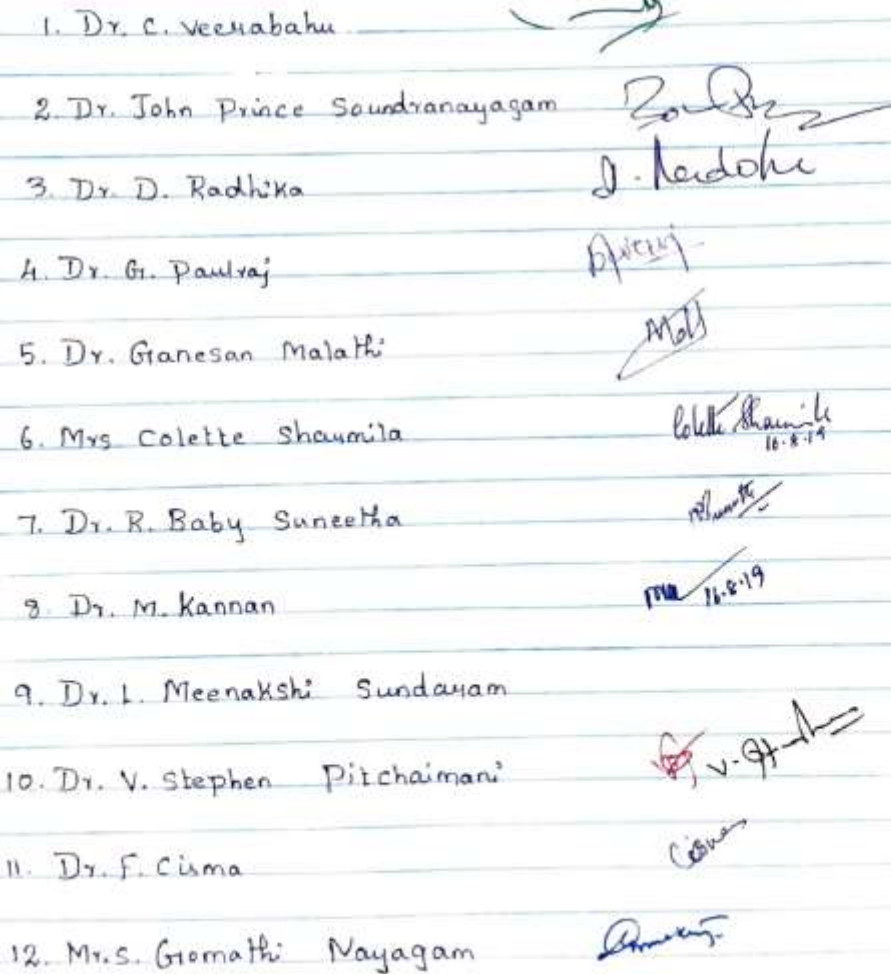 1. Dr. C. Veerabahu
2. Dr. John Prince Soundranayagam
3. Dr. D. Radhika
4. Dr. G. Paulraj
5. Dr. Ganesan Malathi
6. Mrs Colette Sharmila Colette Sharmila
16.8.19
7. Dr. R. Baby Suneetha
8. Dr. M. Kannan 16.8.19
9. Dr. L. Meenakshi Sundaram
10. Dr. V. Stephen Pitchaimani
11. Dr. F. Cisma
12. Mr. S. Gomathi Nayagam